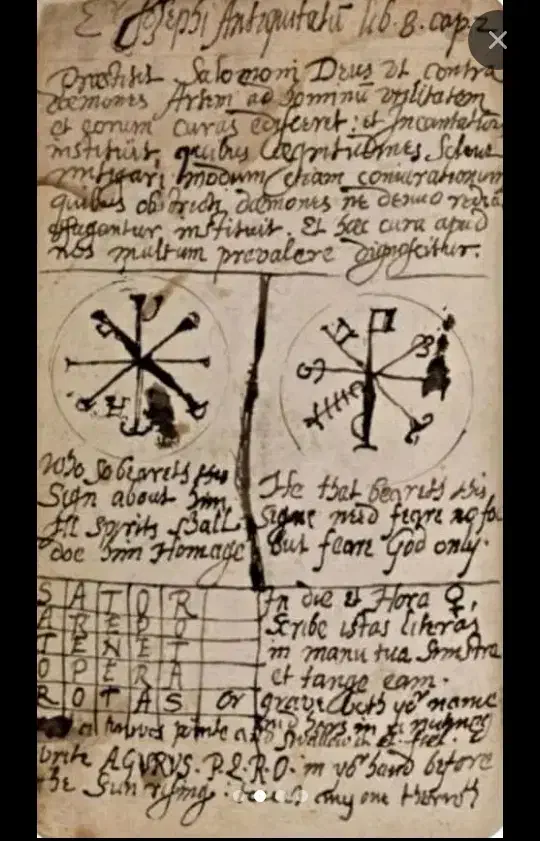 Josephi Antiquitatū lib. 8. cap 2
Præstitit Salomoni Deus vt contra
dæmones Artem ad hominū vtilitatem
et eorum curas edisceret: et Incantationes
instituit, quibus Aegritudines Solent
mitigari, modum etiam coniurationum
quibus obstricti dæmones ne denuo
instituit. Et hæc cura apud
nos multum prevalere dignoscitur.
Who So beareth this
Sign about him
All Spirits Shall
doe him Homage
He that beareth this
Signe need feare no foe
but feare God only.
S A T O R
A R E P O
T E N E T
O P E R A
R O T A S or
In die et Hora ♀,
Scribe istas literas
in manu tua Sinistra
et tange eam.
grave both yoʳ name
write AGVRVS. P. L. R. O. in yoʳ hand before
the Sun rising. any one